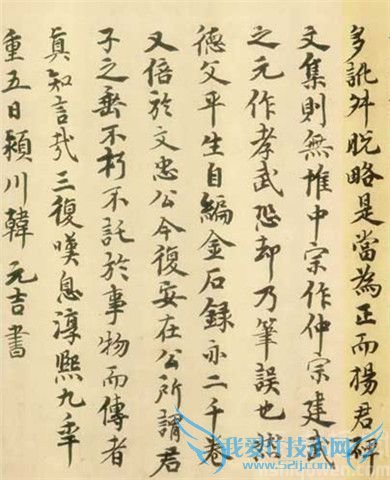 多訛舛脫略是當為正而楊君碑
文集則無惟中宗作仲宗建武
之元作孝武恐却乃筆誤也趙
德父平生自編金石錄亦二千卷
又倍於文忠公今復安在公所謂君
子之垂不朽不託於事物而傳者
真知言哉三復嘆息淳熙九年
重五日潁川韓元吉書
我爱IT技术网
www.52ij.com